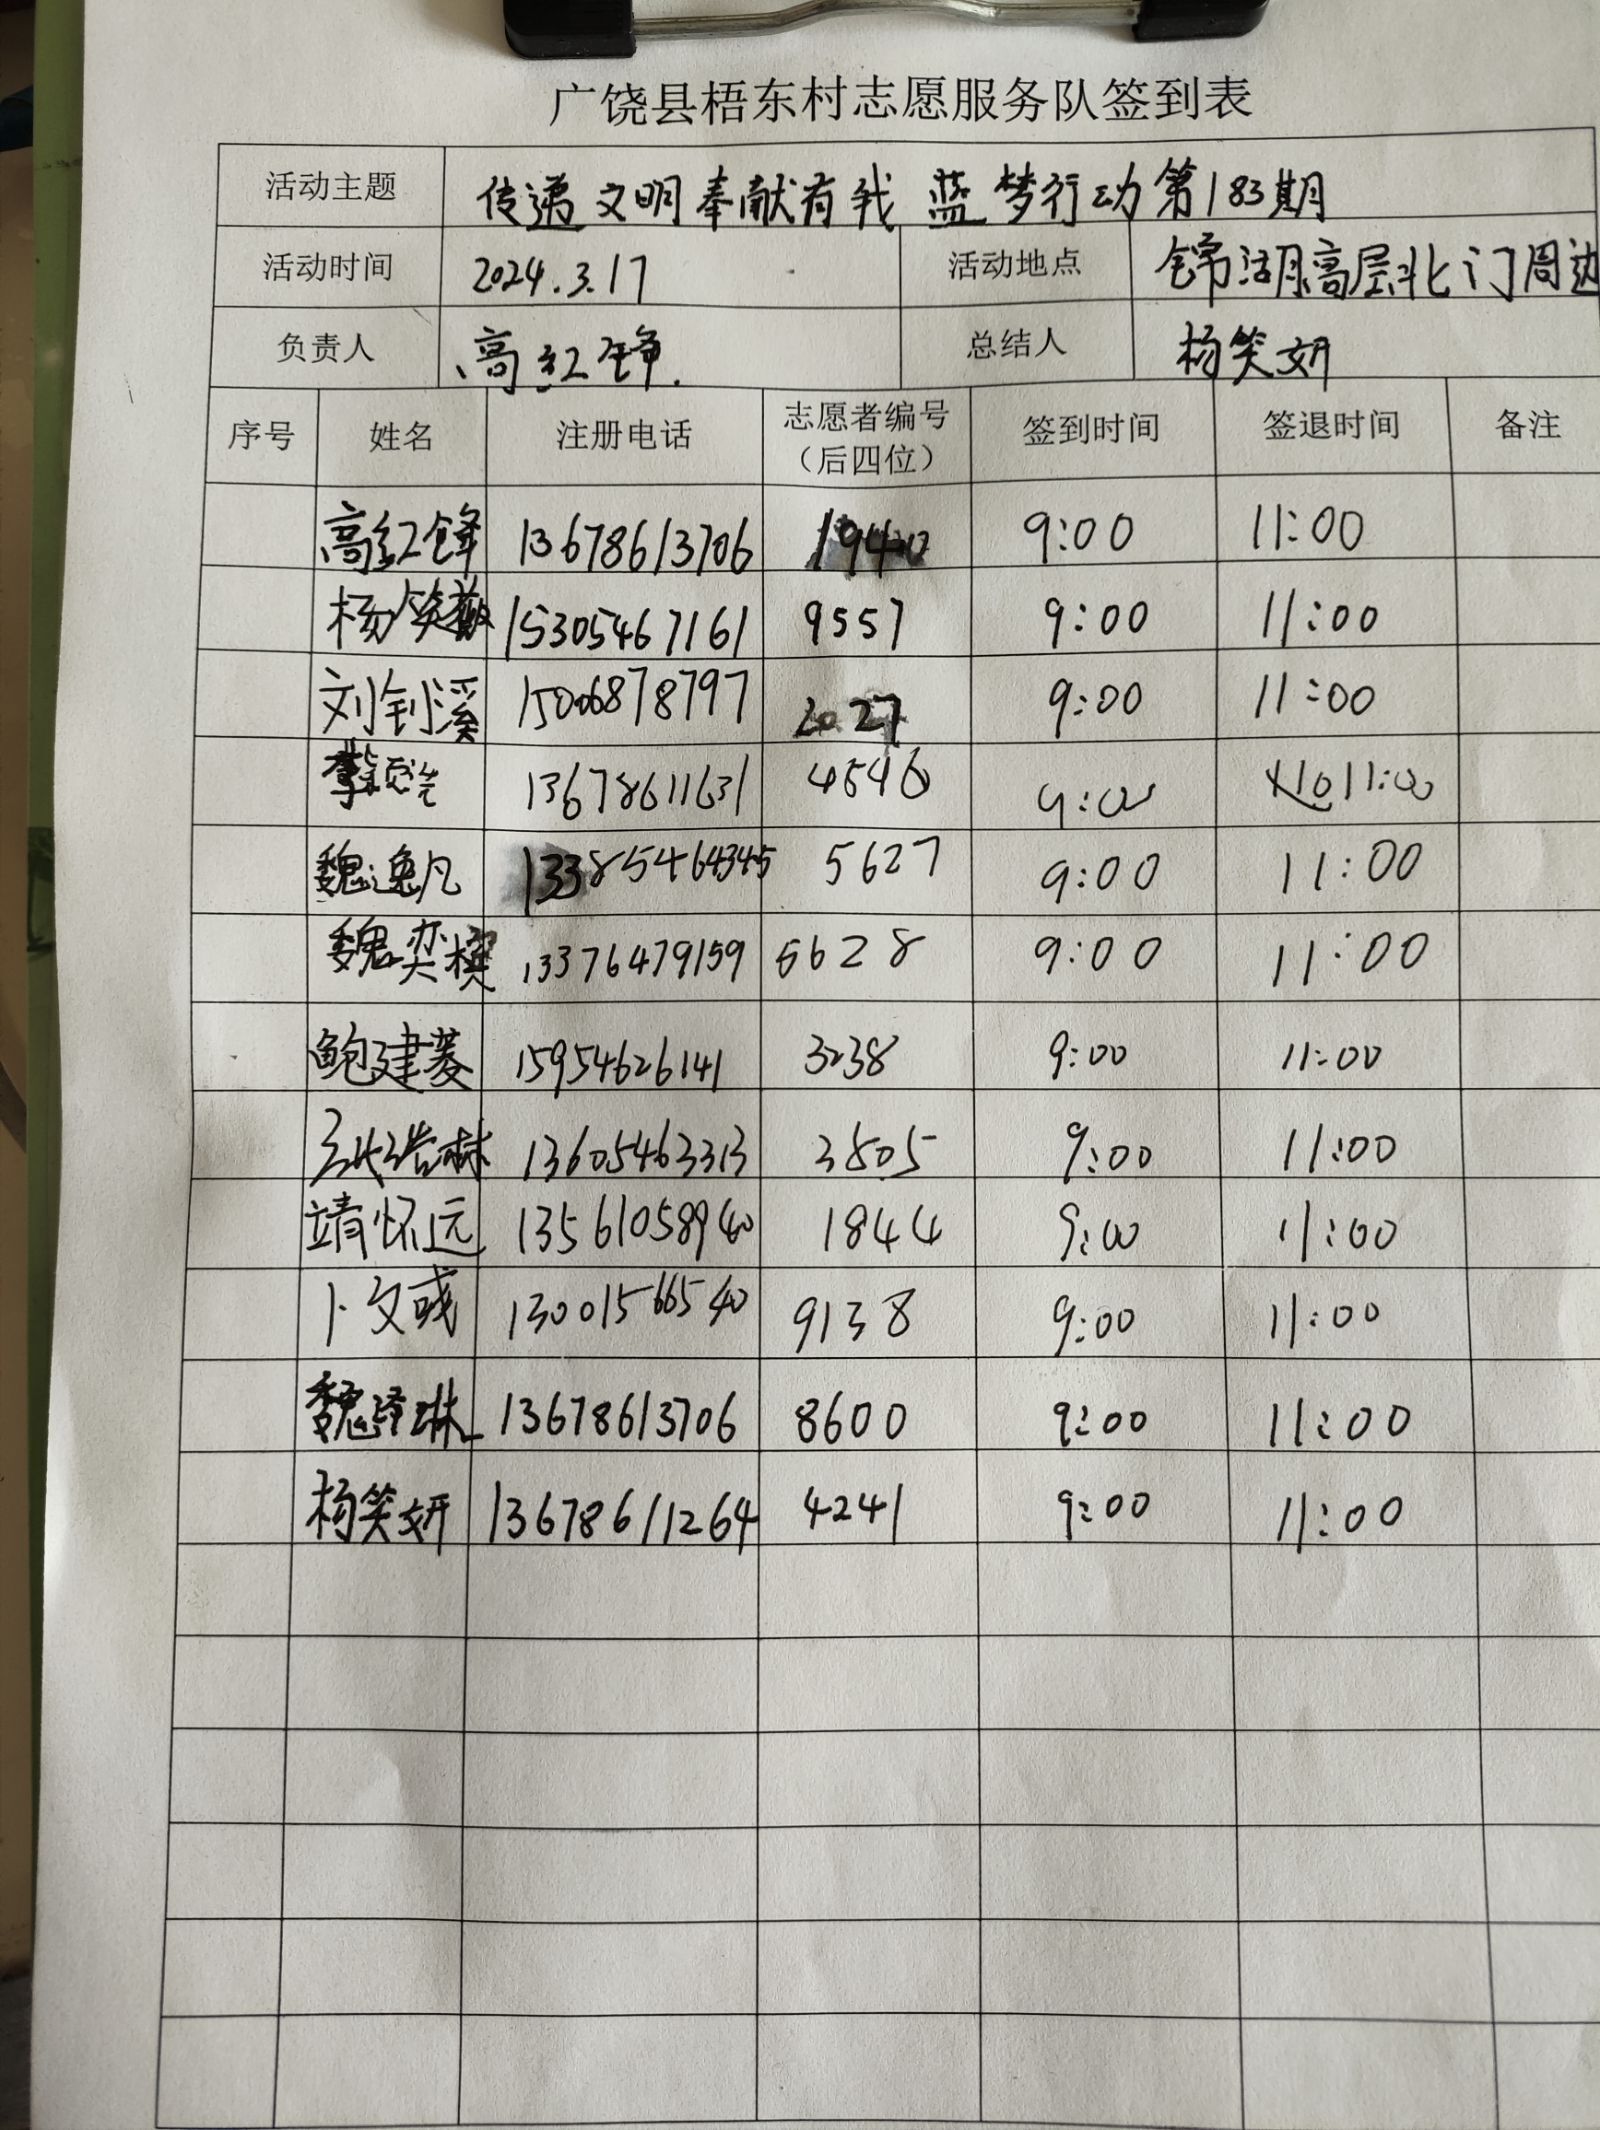 广饶县梧东村志愿服务队签到表
活动主题 传递文明奉献有我 蓝梦行动第183期
活动时间 2024.3.17 活动地点 锦湖高层北门周边
负责人 高红锋 总结人 杨笑妍
序号 姓名 注册电话 志愿者编号（后四位） 签到时间 签退时间 备注
高红锋 13678613706 9:00 11:00
杨笑 15305467161 9557 9:00 11:00
刘钊溪 15006878797 2027 9:00 11:00
13678611631 4546 9:00 11:00
魏逸凡 13385464345 5627 9:00 11:00
魏奕 13376479159 5628 9:00 11:00
鲍建菱 15954626141 3238 9:00 11:00
浩林 13605463313 3505 9:00 11:00
靖怀远 13561058940 1844 9:00 11:00
卜文彧 13001566540 9138 9:00 11:00
魏泽琳 13678613706 8600 9:00 11:00
杨笑妍 13678611264 4241 9:00 11:00